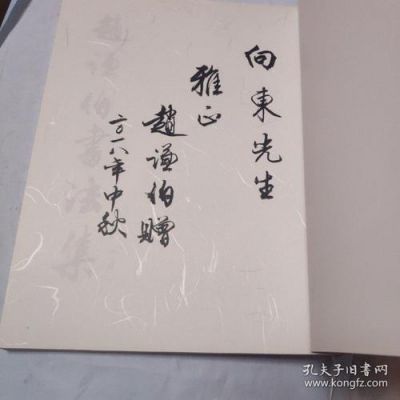 向東先生
雅正
趙謙伯贈
二〇一八年中秋
趙謙伯書法集
孔夫子旧书网
www.kongfz.com